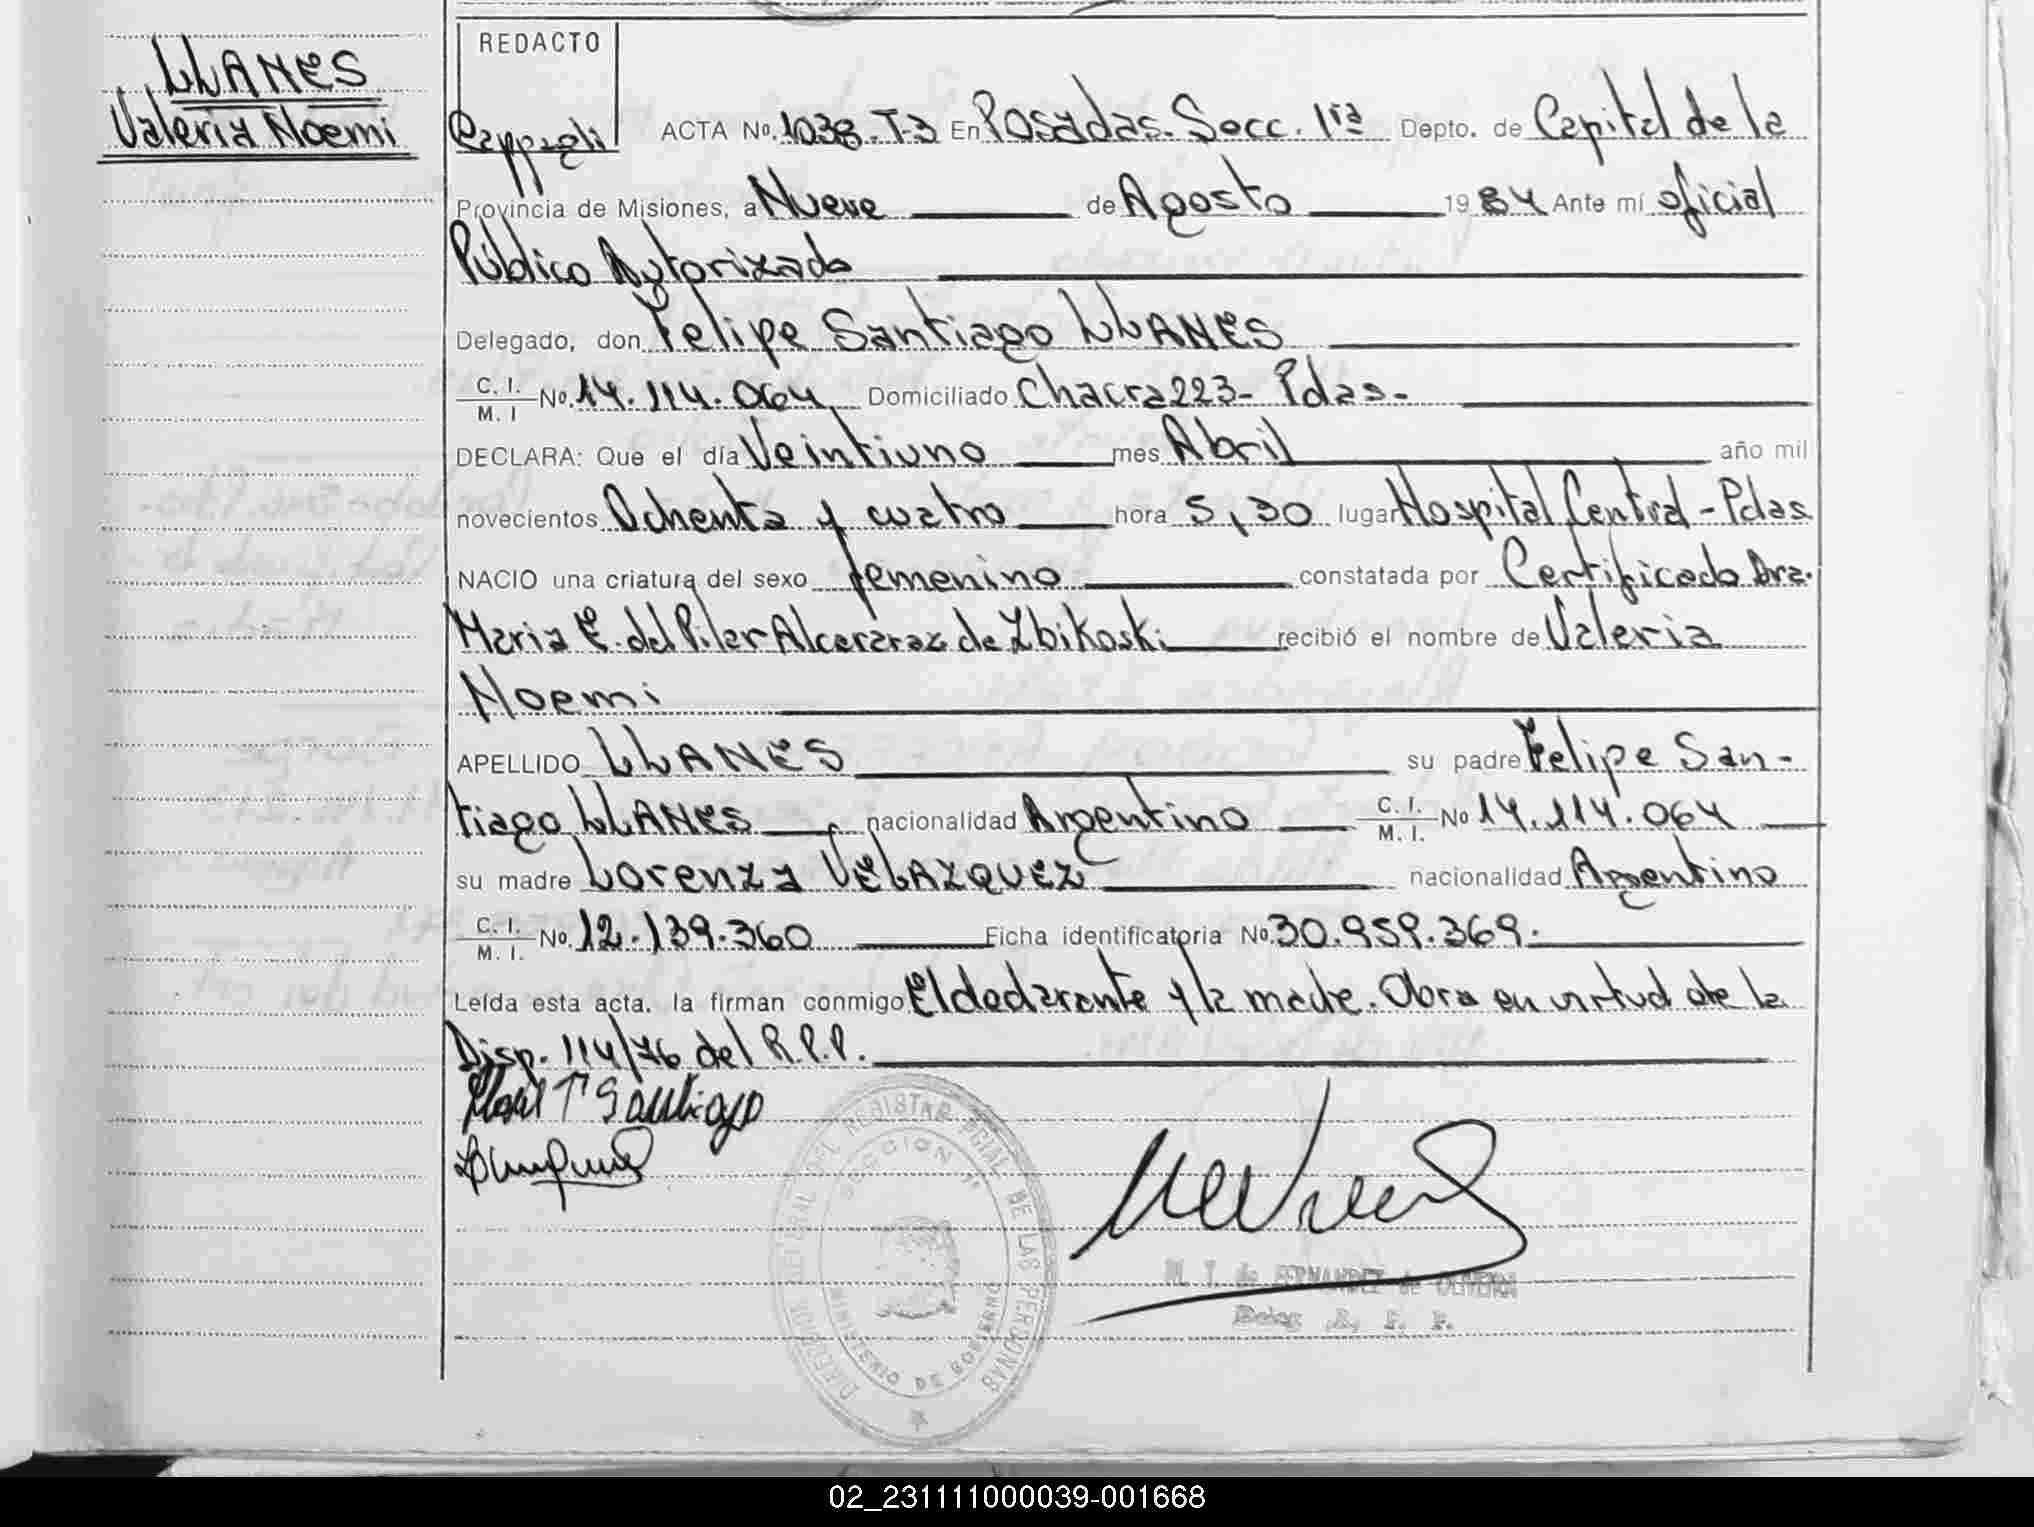 LLANES
Valeria Noemi
REDACTO
Cappagli
ACTA No. 1038. T-3 En Posadas. Secc. 1ra Depto. de Capital de la
Provincia de Misiones, a Nueve de Agosto 1984 Ante mí oficial
Público Autorizado
Delegado, don Felipe Santiago LLANES
C. I. / M. I No. 14.114.064 Domiciliado Chacra 223- Pdas-
DECLARA: Que el día Veintiuno mes Abril año mil
novecientos Ochenta y cuatro hora 5,30 lugar Hospital Central - Pdas
NACIO una criatura del sexo femenino constatada por Certificado Dra.
Maria E. del Pilar Alcararaz de Zbikoski recibió el nombre de Valeria
Noemi
APELLIDO LLANES su padre Felipe San-
tiago LLANES nacionalidad Argentino C. I. / M. I. No 14.114.064
su madre Lorenza VELAZQUEZ nacionalidad Argentino
C. I. / M. I. No. 12.139.360 Ficha identificatoria No. 30.959.369.
Leída esta acta, la firman conmigo El declarante y la madre. Obra en virtud de la
Disp. 114/76 del R.P.P.
Santiago
DIRECCION GENERAL DEL REGISTRO PCIAL DE LAS PERSONAS
SECCION 1ª
MINISTERIO DE GOBIERNO
M. T. de FERNANDEZ de OLIVEIRA
Deleg. R. P. P.
02_231111000039-001668